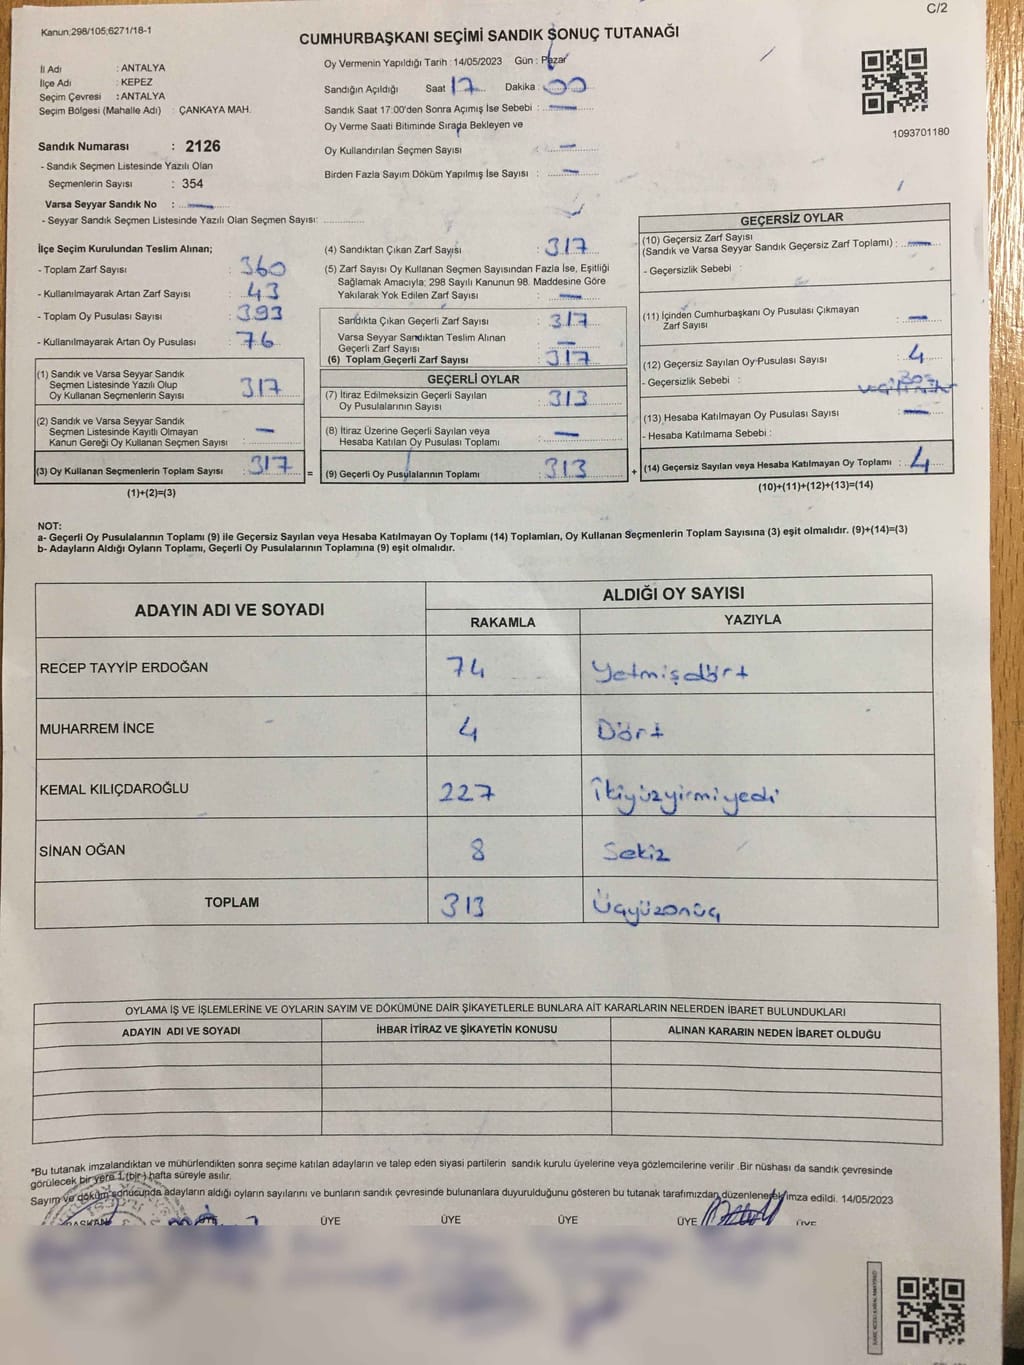 C/2
Kanun:298/105;6271/18-1
CUMHURBAŞKANI SEÇİMİ SANDIK SONUÇ TUTANAĞI
İl Adı : ANTALYA
İlçe Adı : KEPEZ
Seçim Çevresi : ANTALYA
Seçim Bölgesi (Mahalle Adı) : ÇANKAYA MAH.
Oy Vermenin Yapıldığı Tarih : 14/05/2023 Gün : Pazar
Sandığın Açıldığı Saat 17 Dakika : 00
Sandık Saat 17:00'den Sonra Açımış İse Sebebi : —
Oy Verme Saati Bitiminde Sırada Bekleyen ve
Oy Kullandırılan Seçmen Sayısı : —
Birden Fazla Sayım Döküm Yapılmış İse Sayısı : —
1093701180
Sandık Numarası : 2126
- Sandık Seçmen Listesinde Yazılı Olan
Seçmenlerin Sayısı : 354
Varsa Seyyar Sandık No : —
- Seyyar Sandık Seçmen Listesinde Yazılı Olan Seçmen Sayısı: ............
İlçe Seçim Kurulundan Teslim Alınan;
- Toplam Zarf Sayısı : 360
- Kullanılmayarak Artan Zarf Sayısı : 43
- Toplam Oy Pusulası Sayısı : 393
- Kullanılmayarak Artan Oy Pusulası : 76
(1) Sandık ve Varsa Seyyar Sandık
Seçmen Listesinde Yazılı Olup
Oy Kullanan Seçmenlerin Sayısı : 317
(2) Sandık ve Varsa Seyyar Sandık
Seçmen Listesinde Kayıtlı Olmayan
Kanun Gereği Oy Kullanan Seçmen Sayısı : —
(3) Oy Kullanan Seçmenlerin Toplam Sayısı : 317 =
(1)+(2)=(3)
(4) Sandıktan Çıkan Zarf Sayısı : 317
(5) Zarf Sayısı Oy Kullanan Seçmen Sayısından Fazla İse, Eşitliği
Sağlamak Amacıyla; 298 Sayılı Kanunun 98. Maddesine Göre
Yakılarak Yok Edilen Zarf Sayısı : —
Sandıkta Çıkan Geçerli Zarf Sayısı : 317
Varsa Seyyar Sandıktan Teslim Alınan
Geçerli Zarf Sayısı : —
(6) Toplam Geçerli Zarf Sayısı : 317
GEÇERLİ OYLAR
(7) İtiraz Edilmeksizin Geçerli Sayılan
Oy Pusulalarının Sayısı : 313
(8) İtiraz Üzerine Geçerli Sayılan veya
Hesaba Katılan Oy Pusulası Toplamı : —
(9) Geçerli Oy Pusulalarının Toplamı : 313 +
GEÇERSİZ OYLAR
(10) Geçersiz Zarf Sayısı
(Sandık ve Varsa Seyyar Sandık Geçersiz Zarf Toplamı) : —
- Geçersizlik Sebebi :
(11) İçinden Cumhurbaşkanı Oy Pusulası Çıkmayan
Zarf Sayısı : —
(12) Geçersiz Sayılan Oy Pusulası Sayısı : 4
- Geçersizlik Sebebi :
(13) Hesaba Katılmayan Oy Pusulası Sayısı : —
- Hesaba Katılmama Sebebi :
(14) Geçersiz Sayılan veya Hesaba Katılmayan Oy Toplamı : 4
(10)+(11)+(12)+(13)=(14)
NOT:
a- Geçerli Oy Pusulalarının Toplamı (9) ile Geçersiz Sayılan veya Hesaba Katılmayan Oy Toplamı (14) Toplamları, Oy Kullanan Seçmenlerin Toplam Sayısına (3) eşit olmalıdır. (9)+(14)=(3)
b- Adayların Aldığı Oyların Toplamı, Geçerli Oy Pusulalarının Toplamına (9) eşit olmalıdır.
ADAYIN ADI VE SOYADI ALDIĞI OY SAYISI
RAKAMLA YAZIYLA
RECEP TAYYİP ERDOĞAN 74 Yetmişdört
MUHARREM İNCE 4 Dört
KEMAL KILIÇDAROĞLU 227 İkiyüzyirmiyedi
SİNAN OĞAN 8 Sekiz
TOPLAM 313 Üçyüzonüç
OYLAMA İŞ VE İŞLEMLERİNE VE OYLARIN SAYIM VE DÖKÜMÜNE DAİR ŞİKAYETLERLE BUNLARA AİT KARARLARIN NELERDEN İBARET BULUNDUKLARI
ADAYIN ADI VE SOYADI İHBAR İTİRAZ VE ŞİKAYETİN KONUSU ALINAN KARARIN NEDEN İBARET OLDUĞU
*Bu tutanak imzalandıktan ve mühürlendikten sonra seçime katılan adayların ve talep eden siyasi partilerin sandık kurulu üyelerine veya gözlemcilerine verilir .Bir nüshası da sandık çevresinde
görülecek bir yere 1 (bir) hafta süreyle asılır.
Sayım ve döküm sonucunda adayların aldığı oyların sayılarını ve bunların sandık çevresinde bulunanlara duyurulduğunu gösteren bu tutanak tarafımızdan düzenlenerek imza edildi. 14/05/2023
BAŞKAN ÜYE ÜYE ÜYE ÜYE ÜYE ÜYE